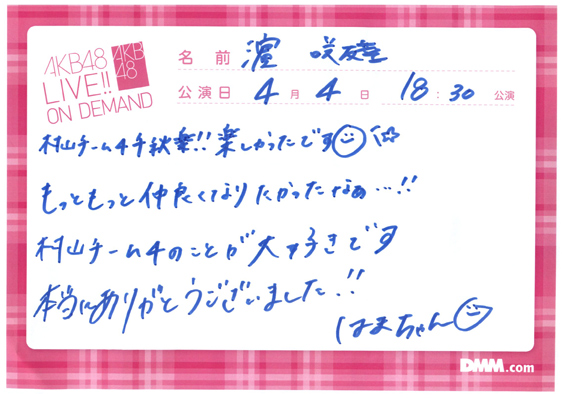 AKB48
LIVE!!
ON DEMAND
AKB
48
名前 濵 咲友菜
公演日 4月4日 18:30 公演
村山チーム4千秋楽!! 楽しかったです
もっともっと仲良くなりたかったなぁ…!!
村山チーム4のことが大好きです
本当にありがとうございました!!
はまちゃん
DMM.com